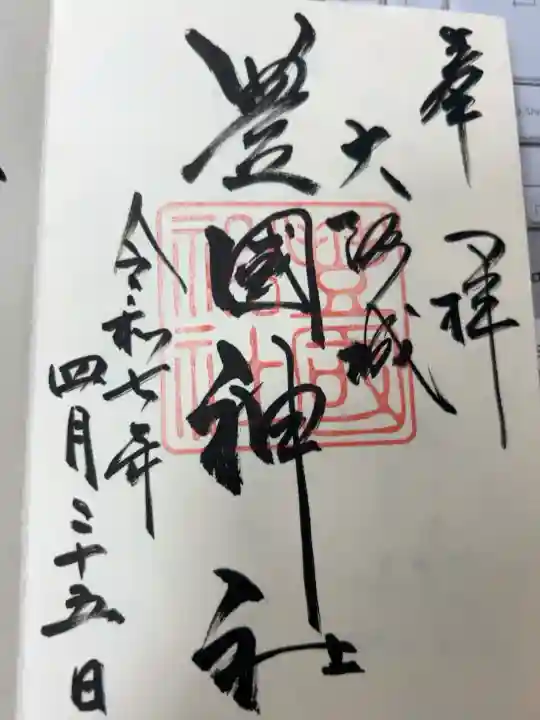 奉拝
大阪城
豊國神社
豊國神社
令和七年
四月二十五日